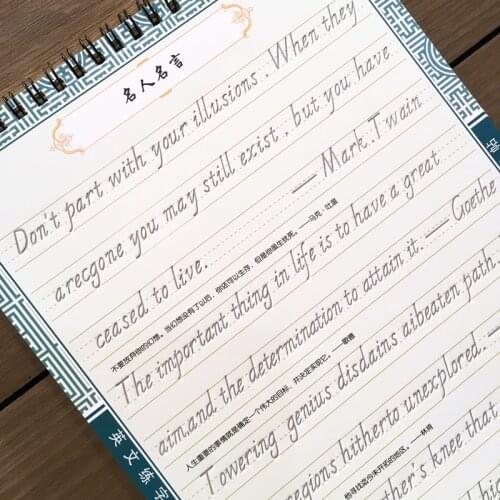 名人名言
Don't part with your illusions . When they
arecgone you may still exist , but you have
ceased to live. — Mark.T wain
不要放弃你的幻想。当幻想没有了以后，你还可以生存，但是你虽生犹死。——马克·吐温
The important thing in life is to have a great
aim,and the determination to attain it. — Goethe
人生重要的事情就是确定一个伟大的目标，并决定实现它。——歌德
T owering genius disdains aibeaten path.
regions hitherto unexplored. —
能寻找迄今未开拓的地区。——林肯
ther's knee that
英文练字